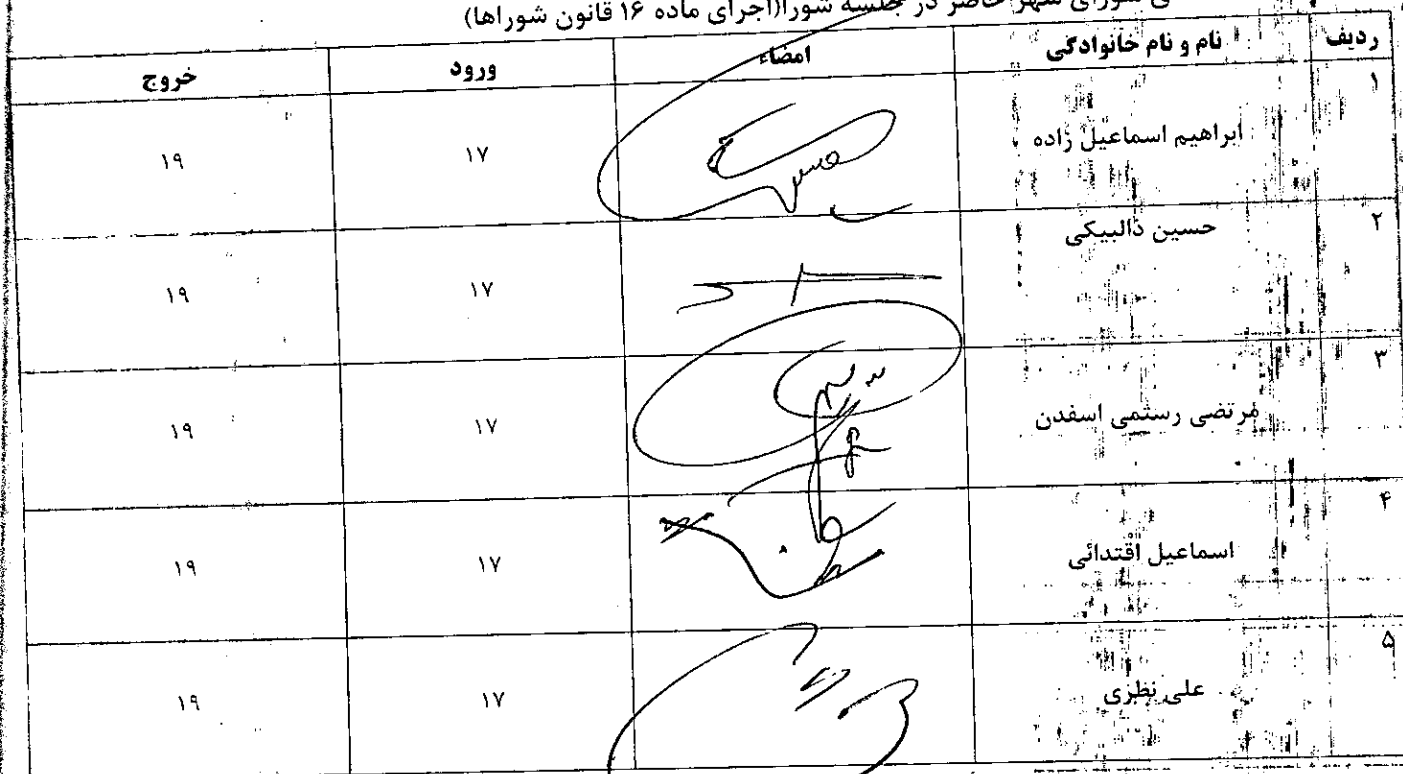 ی شورای شهر حاضر در جلسه شورا(اجرای ماده ۱۶ قانون شوراها)
ردیف نام و نام خانوادگی امضاء ورود خروج
۱ ابراهیم اسماعیل زاده ۱۷ ۱۹
۲ حسین دالبیکی ۱۷ ۱۹
۳ مرتضی رستمی اسفدن ۱۷ ۱۹
۴ اسماعیل اقتدائی ۱۷ ۱۹
۵ علی نظری ۱۷ ۱۹